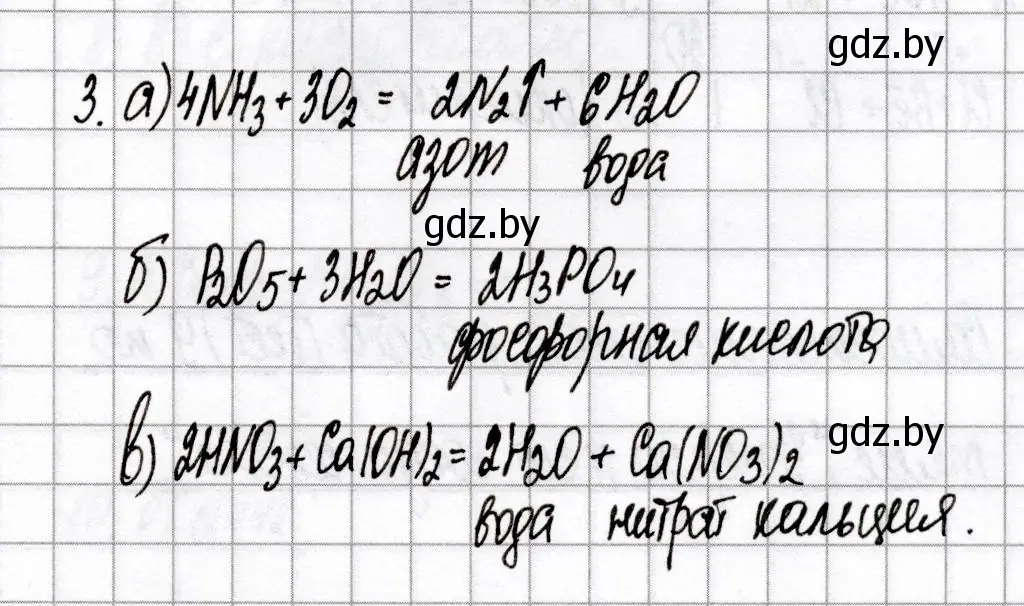 gdz.by
3. а) 4NH₃ + 3O₂ = 2N₂↑ + 6H₂O
азот вода
gdz.by
б) P₂O₅ + 3H₂O = 2H₃PO₄
фосфорная кислота
gdz.by
в) 2HNO₃ + Ca(OH)₂ = 2H₂O + Ca(NO₃)₂
вода нитрат кальция.